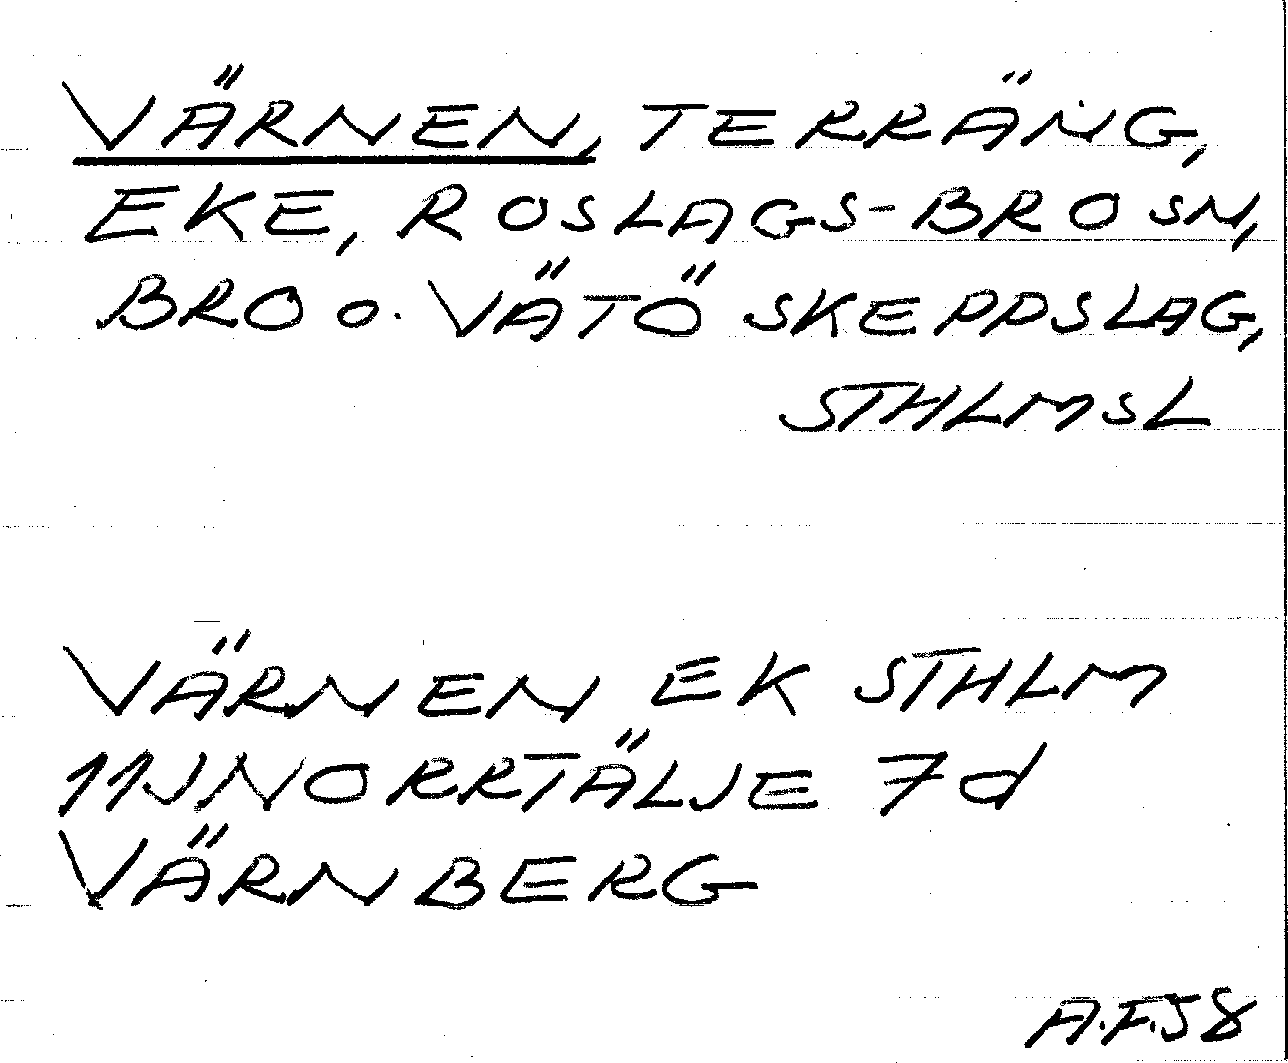 VÄRNEN, TERRÄNG,
EKE, ROSLAGS-BROSN,
BRO o. VÄTÖ SKEPPSLAG,
STHLMSL
VÄRNEN EK STHLM
11J NORRTÄLJE 7d
VÄRNBERG
A.F.58